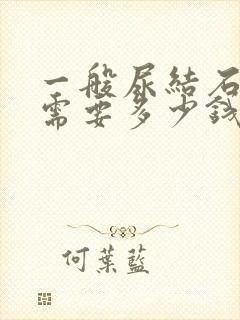 一般尿結石
需要多少錢
何葉藍